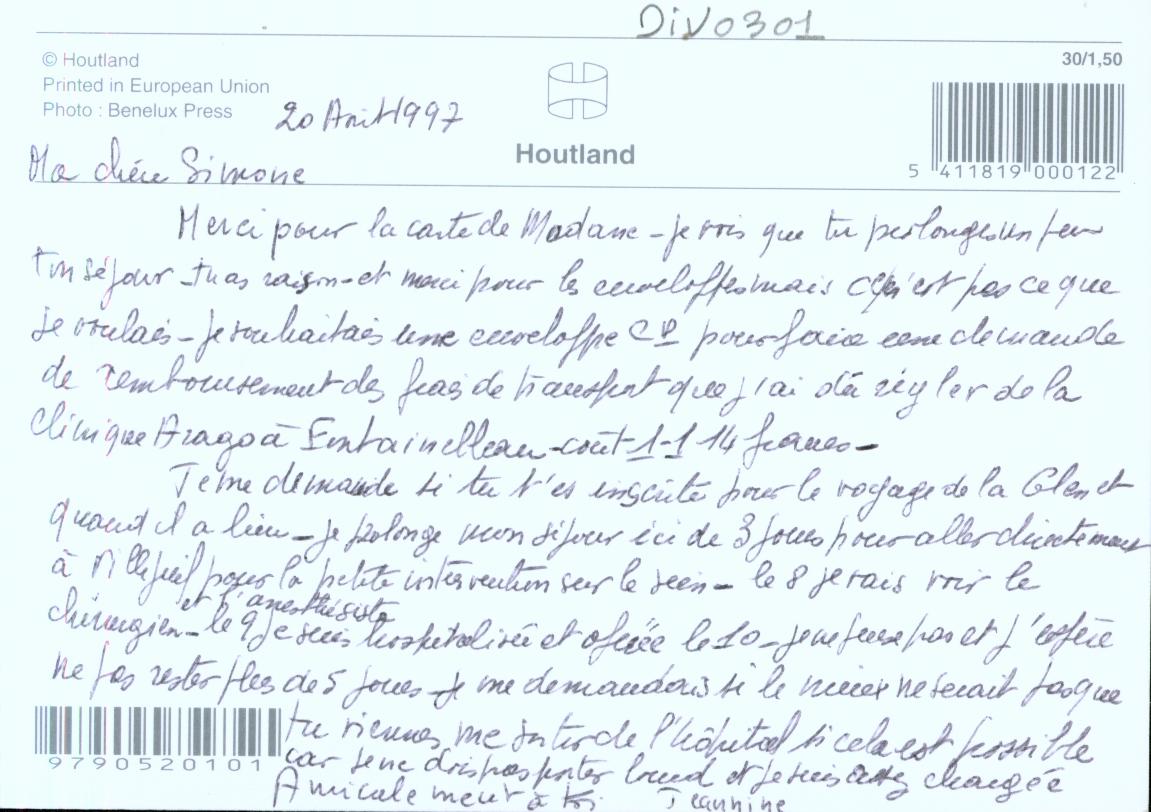 DIV0301
© Houtland
Printed in European Union
Photo : Benelux Press
30/1,50
20 Août 1997
Houtland
5 411819 000122
Ma chère Simone
Merci pour la carte de - je vois que tu prolonges un peu
ton séjour - tu as raison - et merci pour les enveloppes mais ce n'est pas ce que
je voulais - je souhaitais une enveloppe pour faire une demande
de remboursement des frais de transport que j'ai dû régler de la
clinique Arago à Fontainebleau - coût 1114 francs -
Je me demande si tu t'es inscrite pour le voyage de la et
quand il a lieu - je prolonge mon séjour ici de 3 jours pour aller directement
à pour la petite intervention sur le sein - le 8 je vais voir le
et l'anesthésiste
chirurgien - le 9 je suis hospitalisée et opérée le 10 - je ne peux pas et j'espère
ne pas rester plus de 5 jours - je me demandais si le mieux ne serait pas que
tu viennes me sortir de l'hôpital si cela est possible
car je ne dois pas porter lourd et je suis assez chargée
Amicalement à toi Jeannine
9790520101